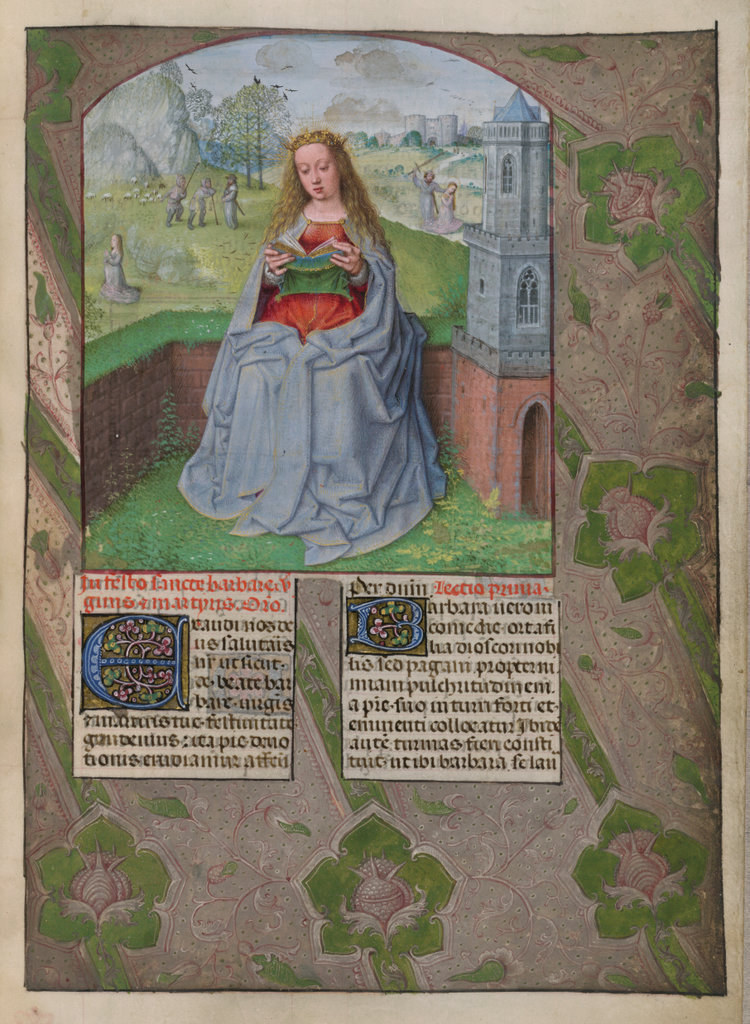 In festo sancte barbare v
ginis et martyris Oro
Exaudi nos de
us salutaris
nr ut sicut
de beate bar
bare virgis
martiris tue festiuitate
gaudemus ita pie deuo
tionis erudiamur affectu
Per dnm Lectio prima
Barbara ueroni
comedie orta fi
lia dioscori nobi
lis sed pagani propter ni
miam pulchritudinem
a pre suo in turri forti et
eminenti collocatur Ibide
aute turmas fieri consti
tuit ut ibi barbara se lau